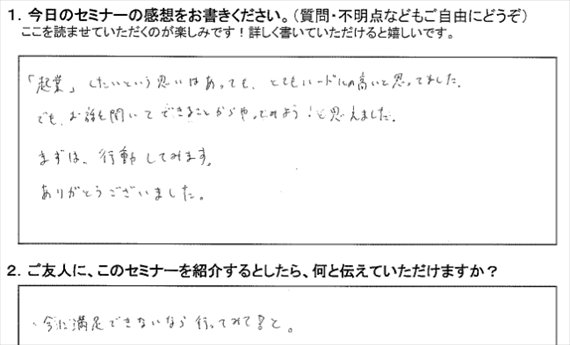 1. 今日のセミナーの感想をお書きください。(質問・不明点などもご自由にどうぞ)
ここを読ませていただくのが楽しみです！詳しく書いていただけると嬉しいです。
「起業」したいという思いはあっても、とてもハードルの高いと思ってました。
でも、お話を聞いてできることからやってみよう！と思えました。
まずは、行動してみます。
ありがとうございました。
2. ご友人に、このセミナーを紹介するとしたら、何と伝えていただけますか？
・今に満足できないなら行ってみてと。